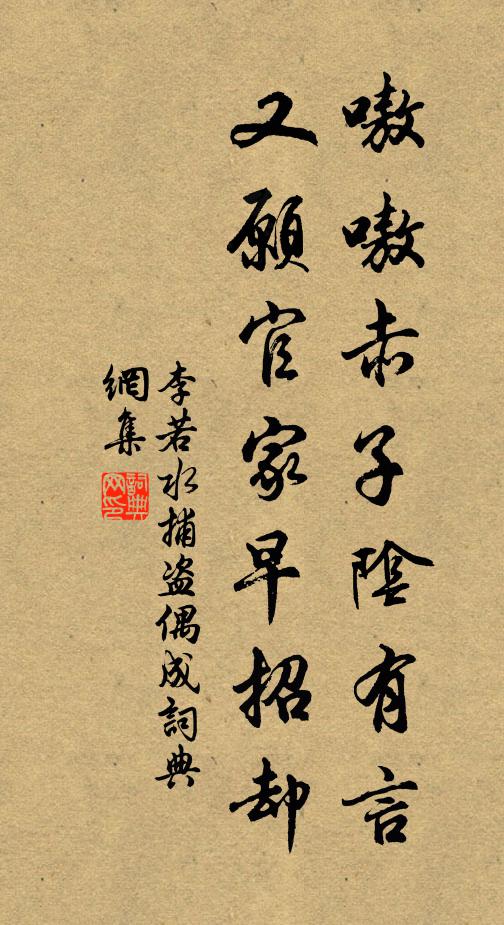 嗷嗷赤子陰有言
又願官家早招却
李若水捕盗偶成詞典
網集
詞典
网印